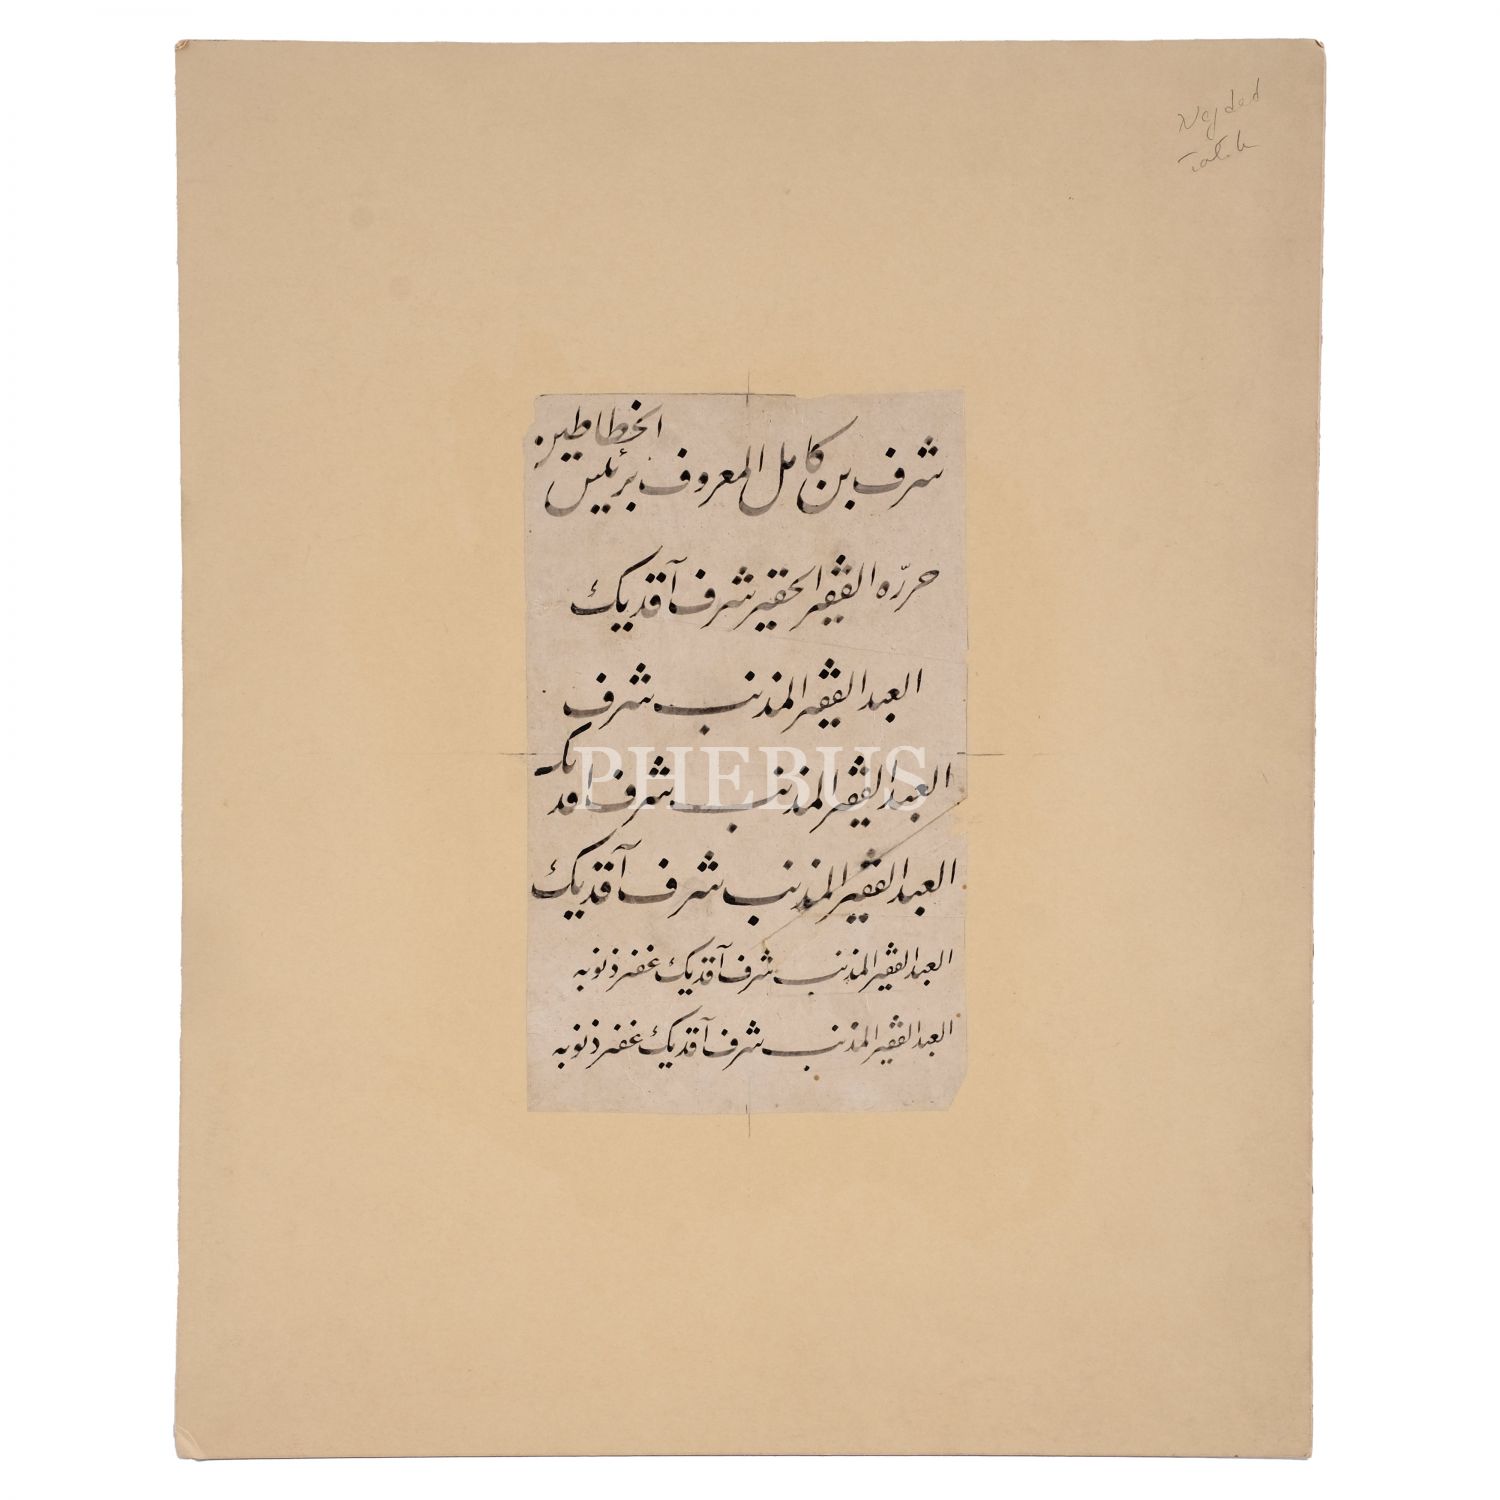 Nejded
شرف بن كامل المعروف برئيس الخطاطين
حرّره الفقير الحقير شرف آقديك
العبد الفقير المذنب شرف
العبد الفقير المذنب شرف اقديك
PHEBUS
العبد الفقير المذنب شرف آقديك
العبد الفقير المذنب شرف آقديك غفر ذنوبه
العبد الفقير المذنب شرف آقديك غفر ذنوبه